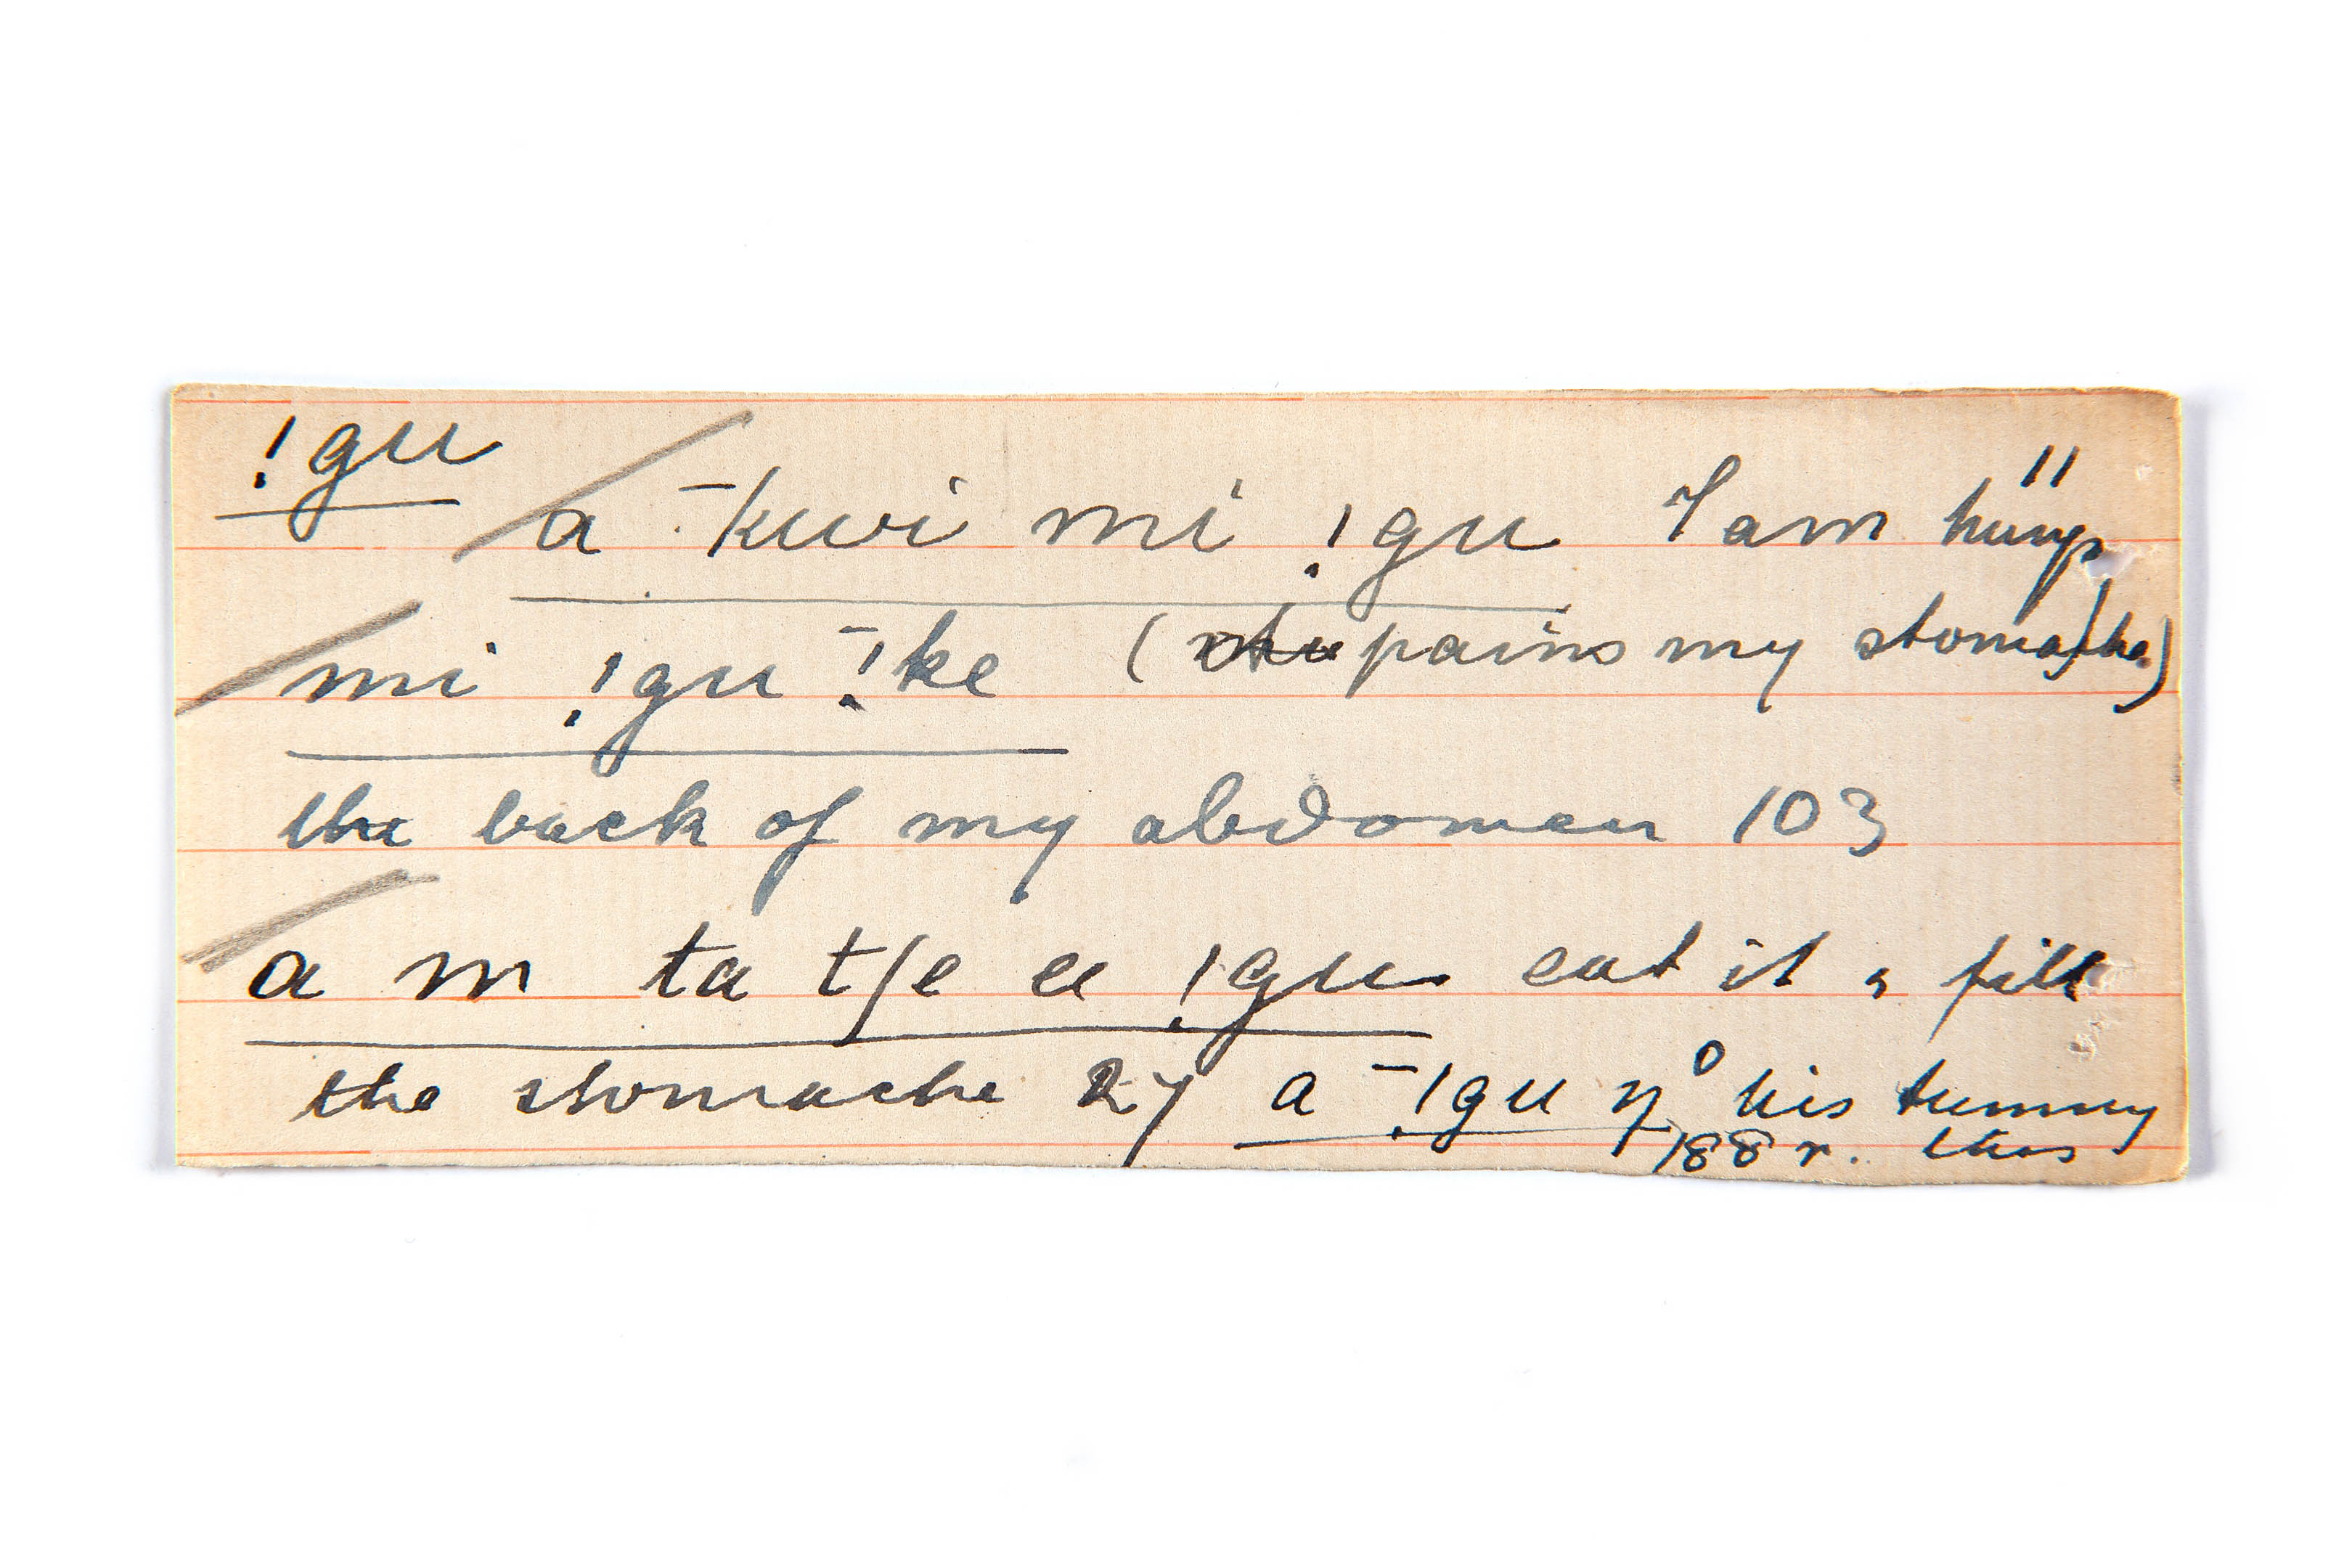 !gu
a ¯kwi mi !gu I am hungry 11
mi !gu ¯!ke (pains my stomache)
the back of my abdomen 103
a m ta tʃe a !gu eat it & fill
the stomache 27 a ¯!gu ŋ° his tummy
188 r. this